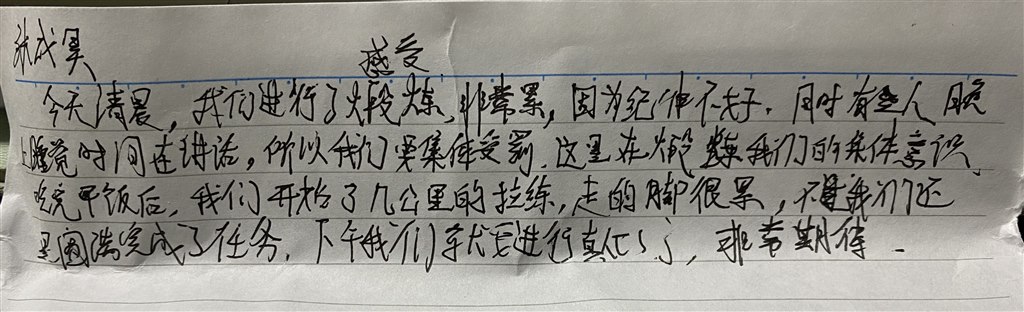 张成昊 感受
今天清晨,我们进行了火段炼,非常累,因为纪律不好.同时有些人晚
上睡觉时间在讲话,所以我们要集体受罚.这是在火段炼我们的集体意识.
吃完早饭后,我们开始了几公里的拉练,走的脚很累,不过我们还
是圆满完成了任务.下午我们就要进行真人CS了,非常期待.